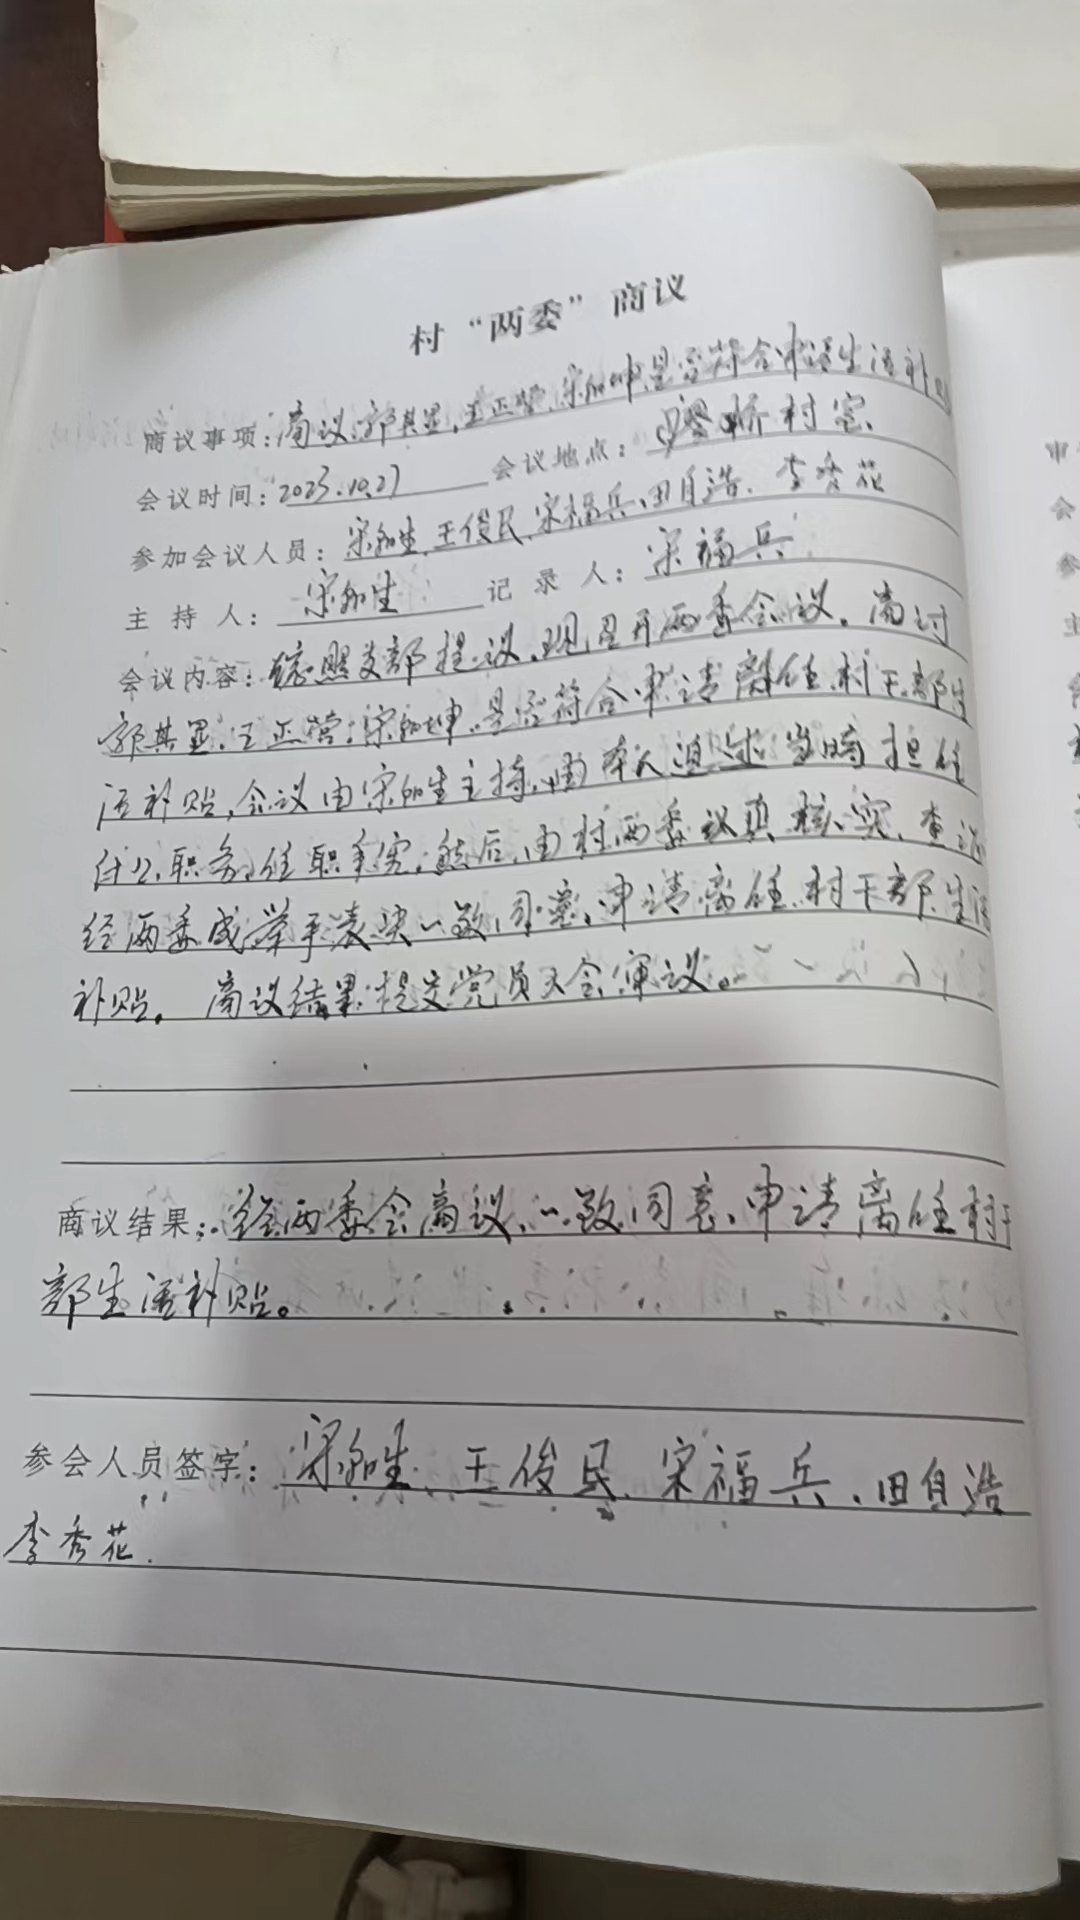 村“两委”商议
商议事项：商议郭其显、王正营、宋 坤是否符合申请生活补贴
会议时间：2023.10.27 会议地点： 桥村室
参加会议人员：宋 生、王俊民、宋福兵、田自浩、李秀花
主持人：宋 生 记录人：宋福兵
会议内容： 照支部提议，现召开两委会议。商讨
郭其显、王正营、宋 坤、是否符合申请离任村干部生
活补贴，会议由宋 生主持，由本人追述当时担任
什么职务、任职 ，然后，由村两委议真核实、查
经两委成举手表决一致同意、申请离任村干部生活
补贴。商议结果提交党员大会审议。
商议结果：经两委会商议，一致同意、申请离任村干
部生活补贴。
参会人员签字：宋 生 王俊民、宋福兵、田自浩
李秀花
申
会
参
主